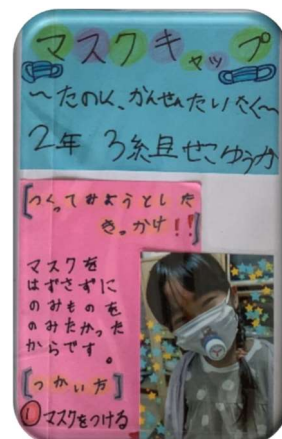 マスクキャップ
～たのしく、かんせんたいさく～
2年 3組 せこゆうか
[つくってみようとした
きっかけ!!]
マスクを
はずさずに
のみものを
のみたかった
からです。
[つかい方]
①マスクをつける